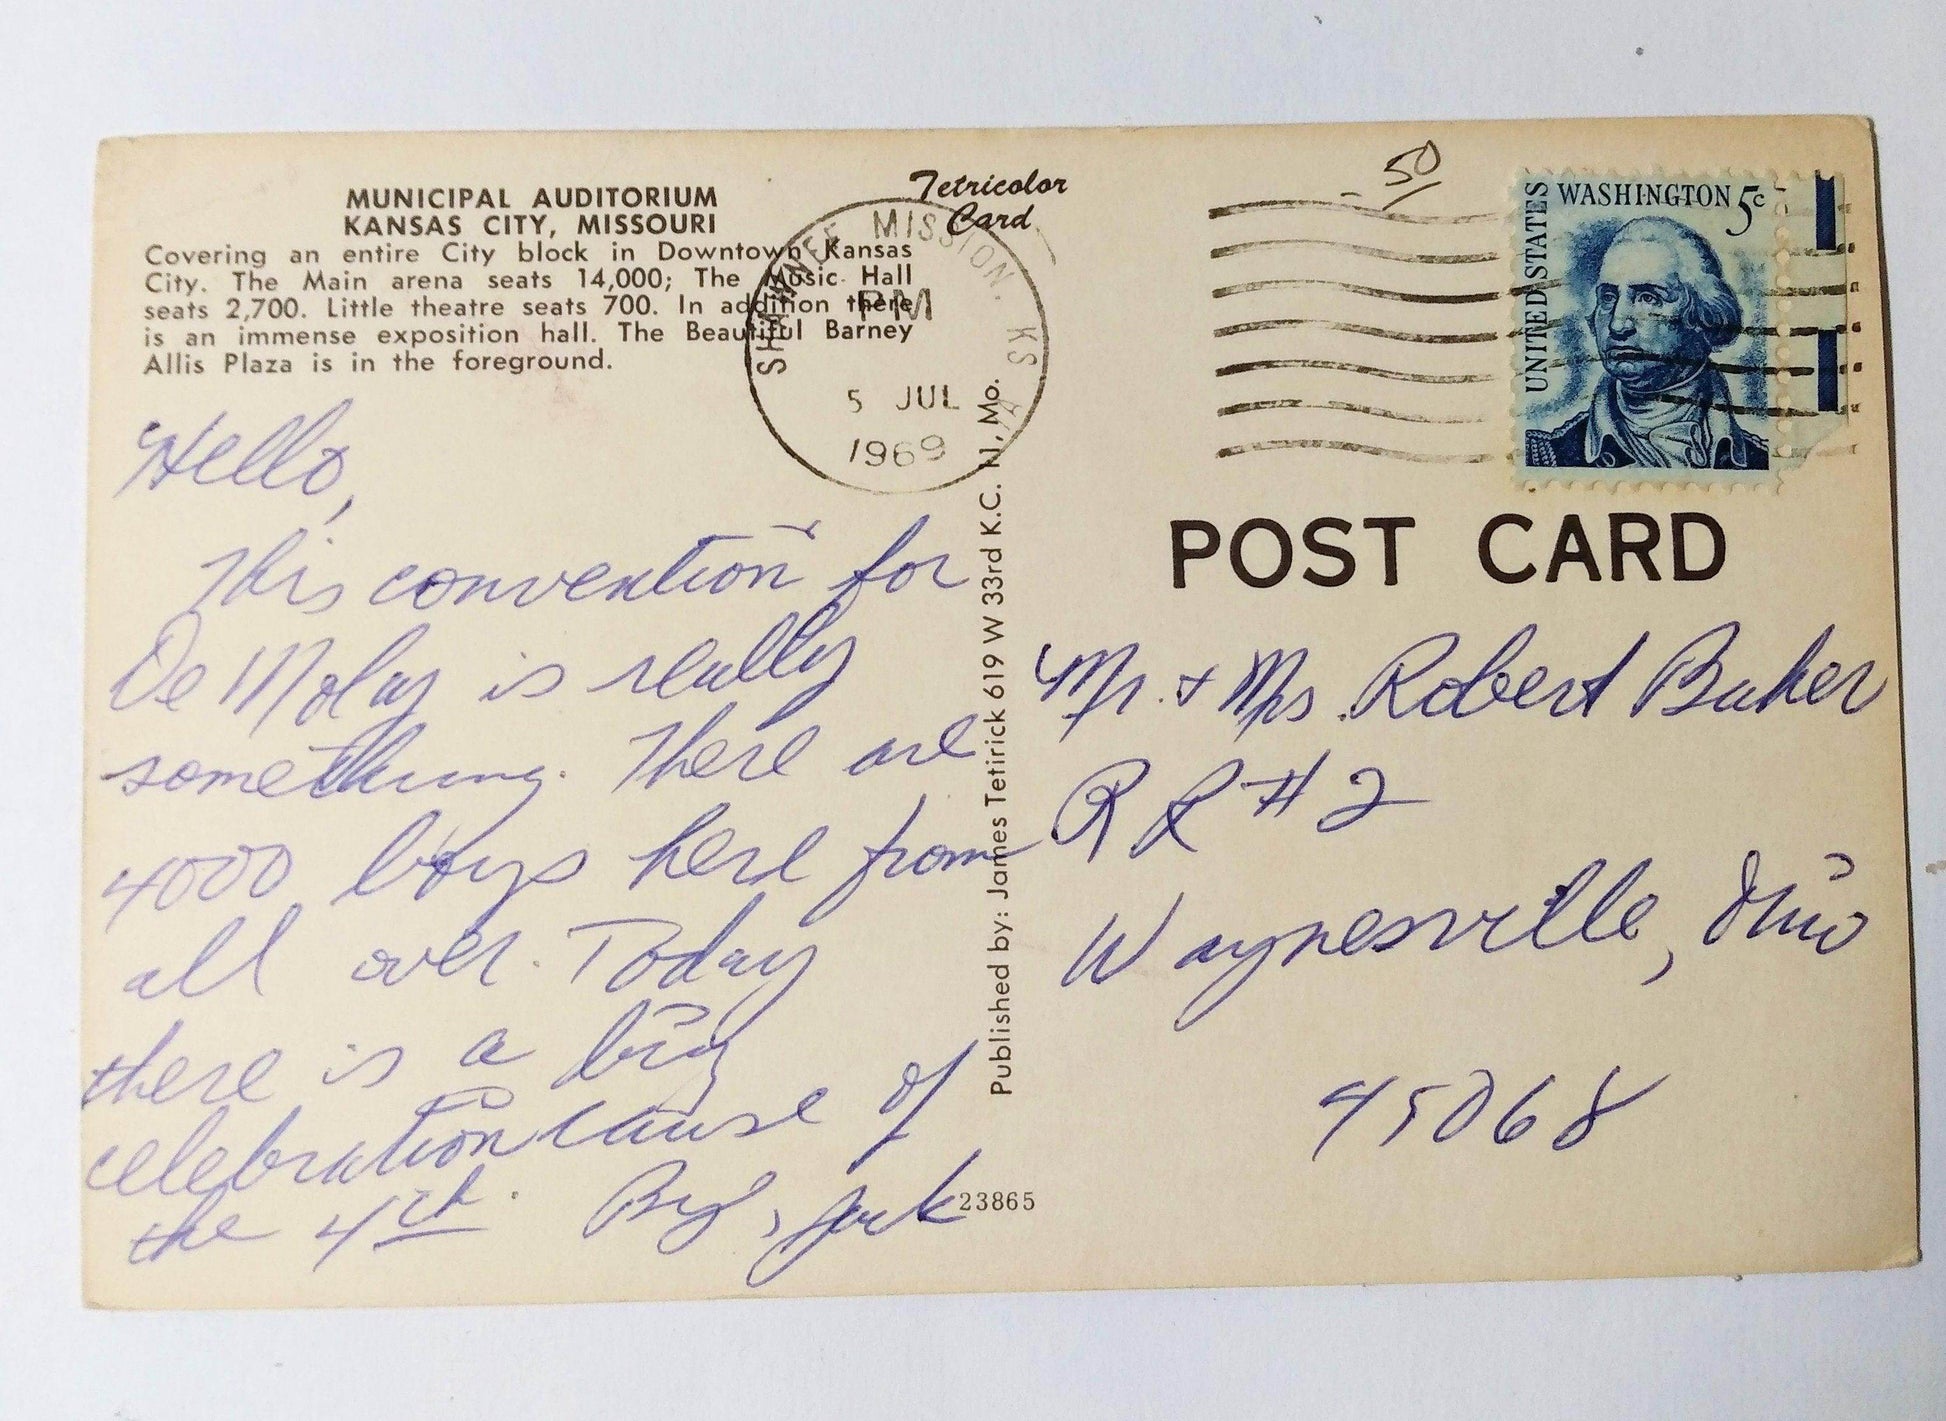 MUNICIPAL AUDITORIUM
KANSAS CITY, MISSOURI
Covering an entire City block in Downtown Kansas
City. The Main arena seats 14,000; The Music Hall
seats 2,700. Little theatre seats 700. In addition there
is an immense exposition hall. The Beautiful Barney
Allis Plaza is in the foreground.
Tetricolor
Card
SHAWNEE MISSION, KS
PM
5 JUL
1969
50
UNITED STATES
WASHINGTON 5c
Hello,
This convention for
De Molay is really
something. There are
4000 boys here from
all over. Today
there is a big
celebration cause of
the 4th. Bye, Jack
Published by: James Tetirick 619 W 33rd K.C. 11, Mo.
23865
POST CARD
Mr. + Mrs. Robert Baker
RR #2
Waynesville, Ohio
45068